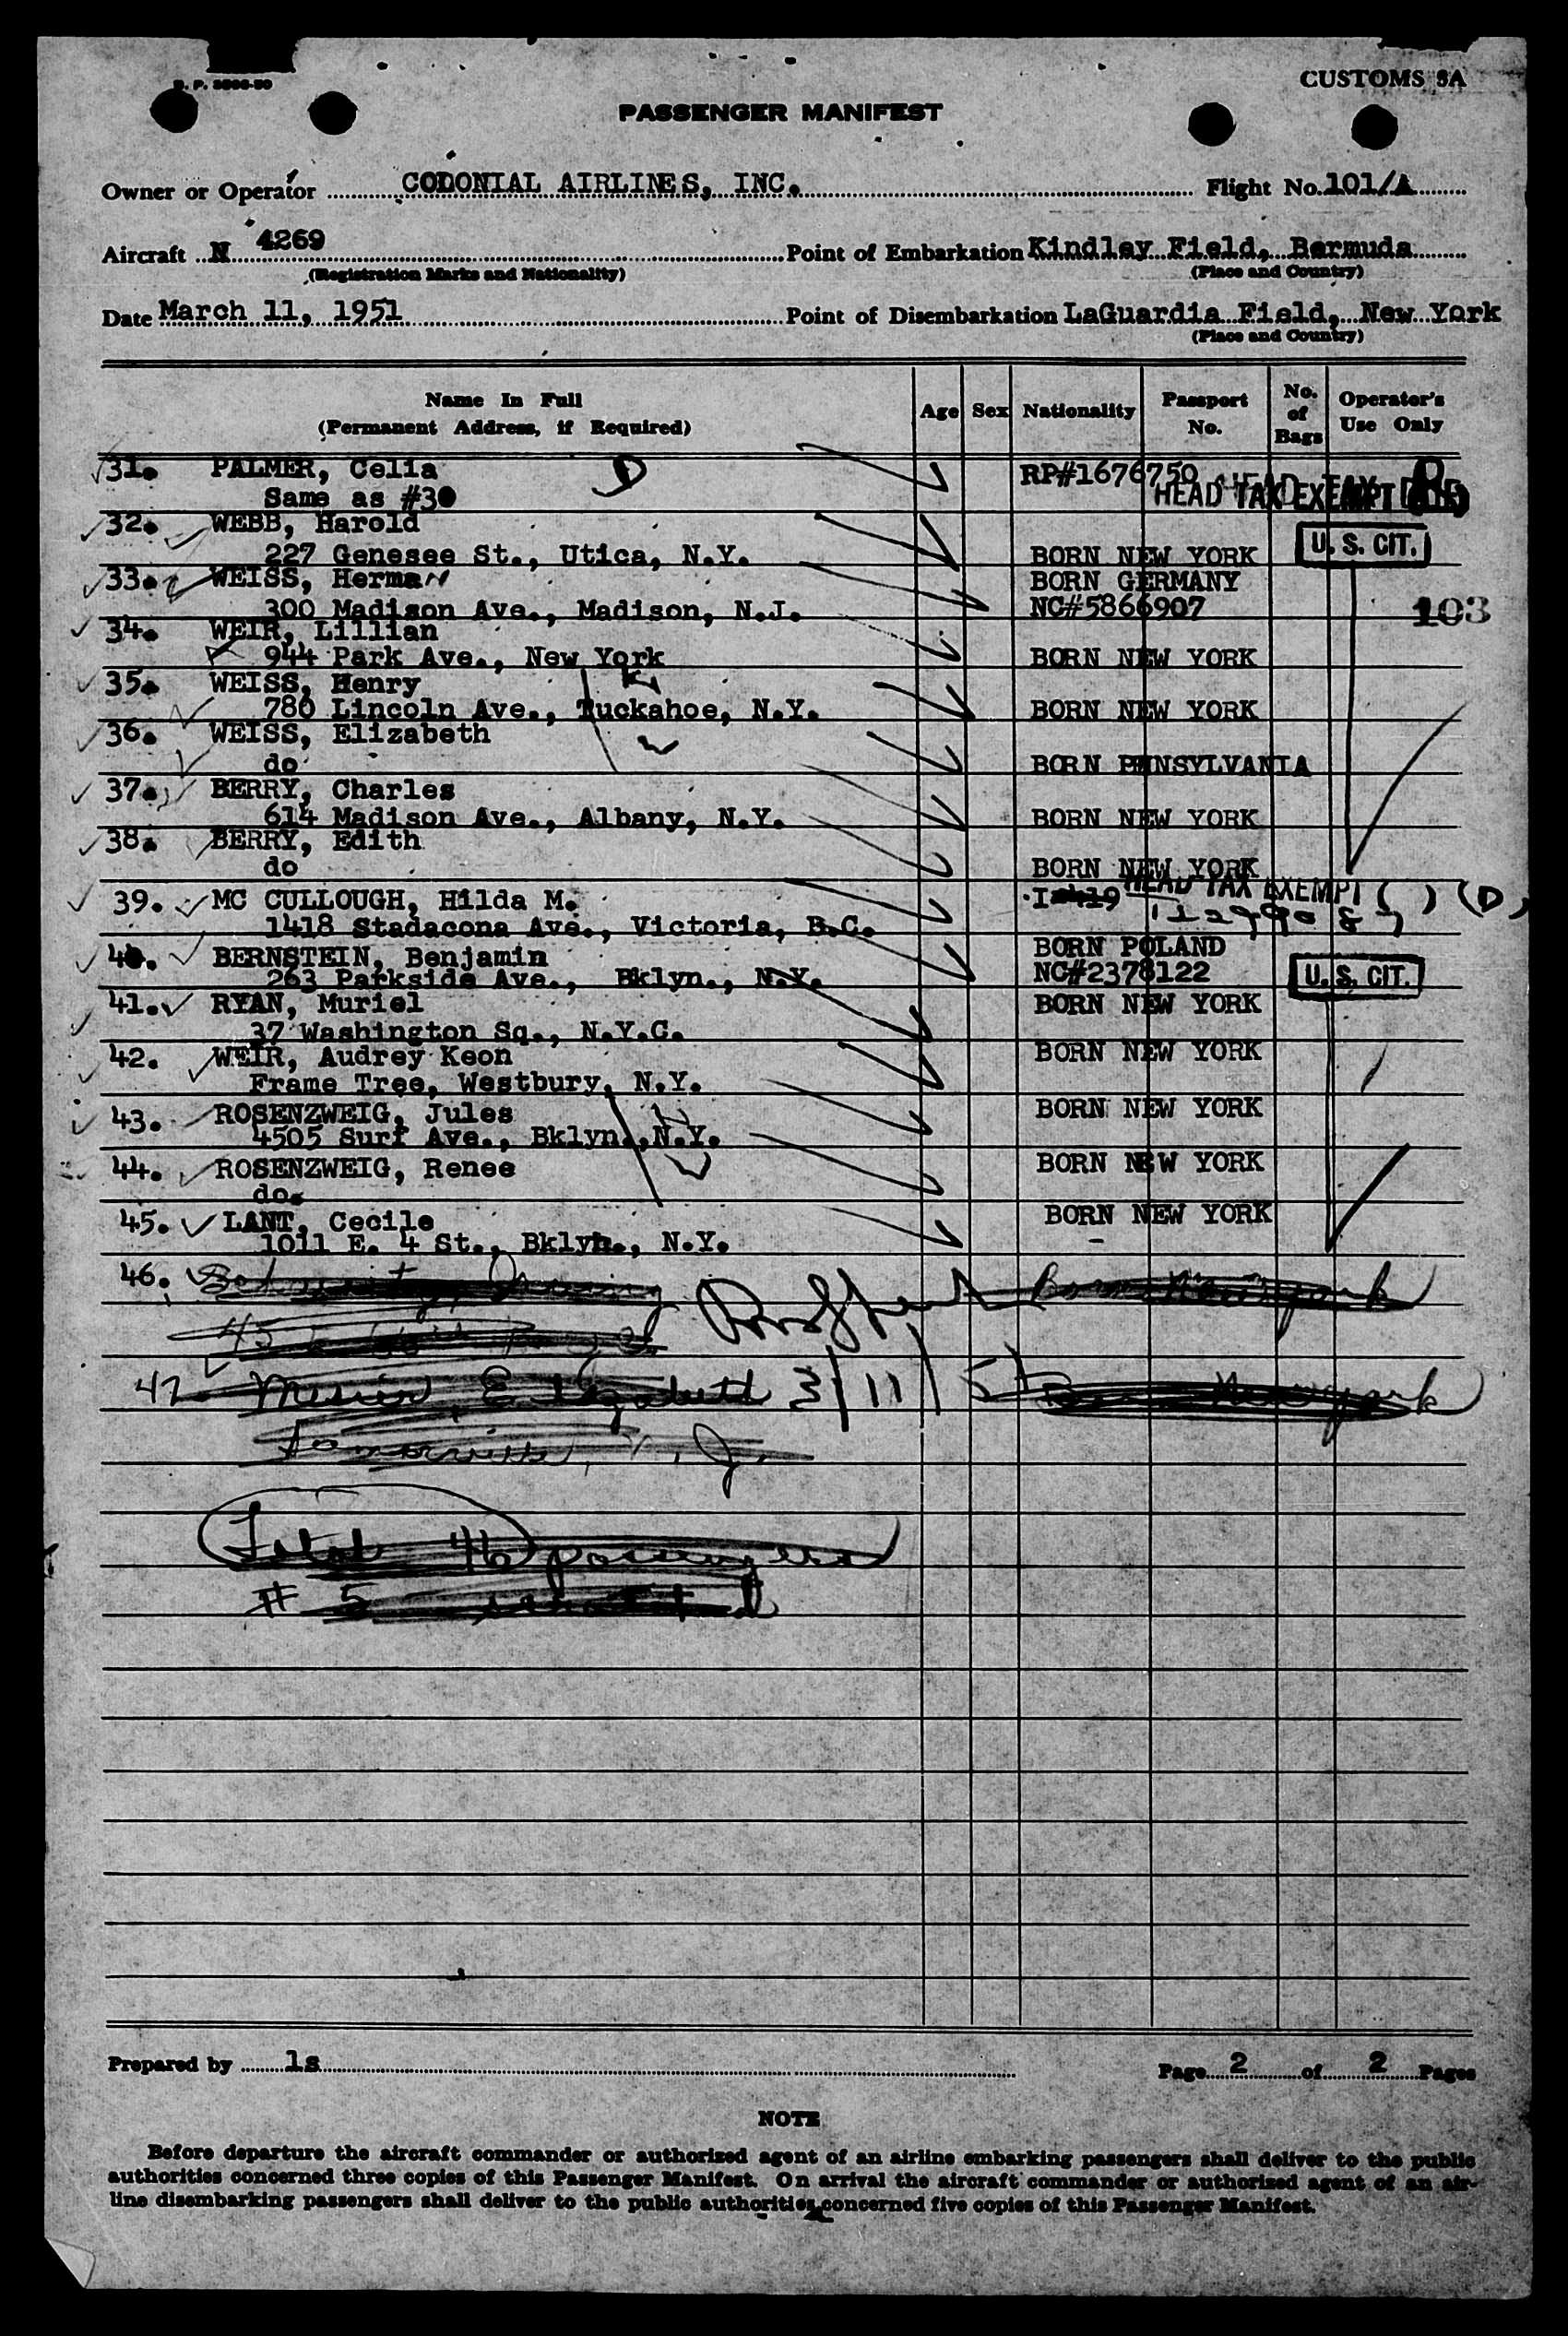 CUSTOMS 8A
PASSENGER MANIFEST
Owner or Operator COLONIAL AIRLINES, INC. Flight No. 101/A
Aircraft N 4269 Point of Embarkation Kindley Field, Bermuda
(Registration Marks and Nationality) (Place and Country)
Date March 11, 1951 Point of Disembarkation LaGuardia Field, New York
(Place and Country)
Name In Full (Permanent Address, if Required) Age Sex Nationality Passport No. No. of Bags Operator's Use Only
31. PALMER, Celia D RP#1676750
Same as #30 HEAD TAX EXEMPT
32. WEBB, Harold
227 Genesee St., Utica, N.Y. BORN NEW YORK U. S. CIT.
33. WEISS, Herman BORN GERMANY
300 Madison Ave., Madison, N.J. NC#5866907 103
34. WEIR, Lillian
944 Park Ave., New York BORN NEW YORK
35. WEISS, Henry
780 Lincoln Ave., Tuckahoe, N.Y. BORN NEW YORK
36. WEISS, Elizabeth
do BORN PENNSYLVANIA
37. BERRY, Charles
614 Madison Ave., Albany, N.Y. BORN NEW YORK
38. BERRY, Edith
do BORN NEW YORK
39. MC CULLOUGH, Hilda M. HEAD TAX EXEMPT ( ) (D)
1418 Stadacona Ave., Victoria, B.C.
40. BERNSTEIN, Benjamin BORN POLAND
263 Parkside Ave., Bklyn., N.Y. NC#2378122 U. S. CIT.
41. RYAN, Muriel BORN NEW YORK
37 Washington Sq., N.Y.C.
42. WEIR, Audrey Keon BORN NEW YORK
Frame Tree, Westbury, N.Y.
43. ROSENZWEIG, Jules BORN NEW YORK
4505 Surf Ave., Bklyn., N.Y.
44. ROSENZWEIG, Renee BORN NEW YORK
do.
45. LANT, Cecile BORN NEW YORK
1011 E. 4 St., Bklyn., N.Y.
46. Born New York
47 Elizabeth 3/11/51 Born New York
Total 46 passengers
# 5
Prepared by ls Page 2 of 2 Pages
NOTE
Before departure the aircraft commander or authorized agent of an airline embarking passengers shall deliver to the public
authorities concerned three copies of this Passenger Manifest. On arrival the aircraft commander or authorized agent of an air-
line disembarking passengers shall deliver to the public authorities concerned five copies of this Passenger Manifest.